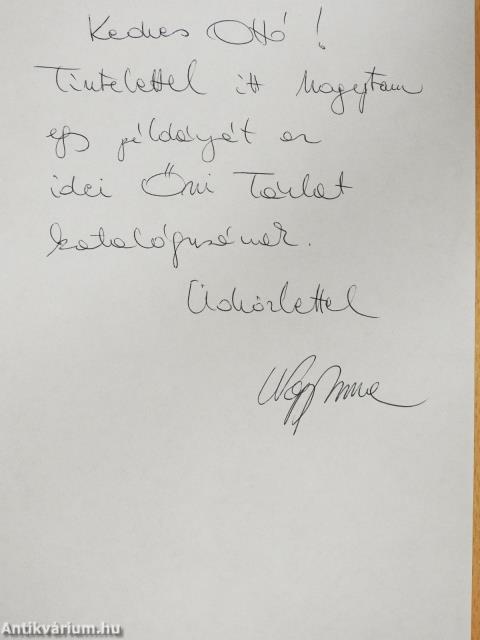 Kedves Ottó!
Tisztelettel itt hagytam
egy példányát az
idei Őszi Tárlat
katalógusának.
Üdvözlettel
Nagy Imre
Antikvárium.hu